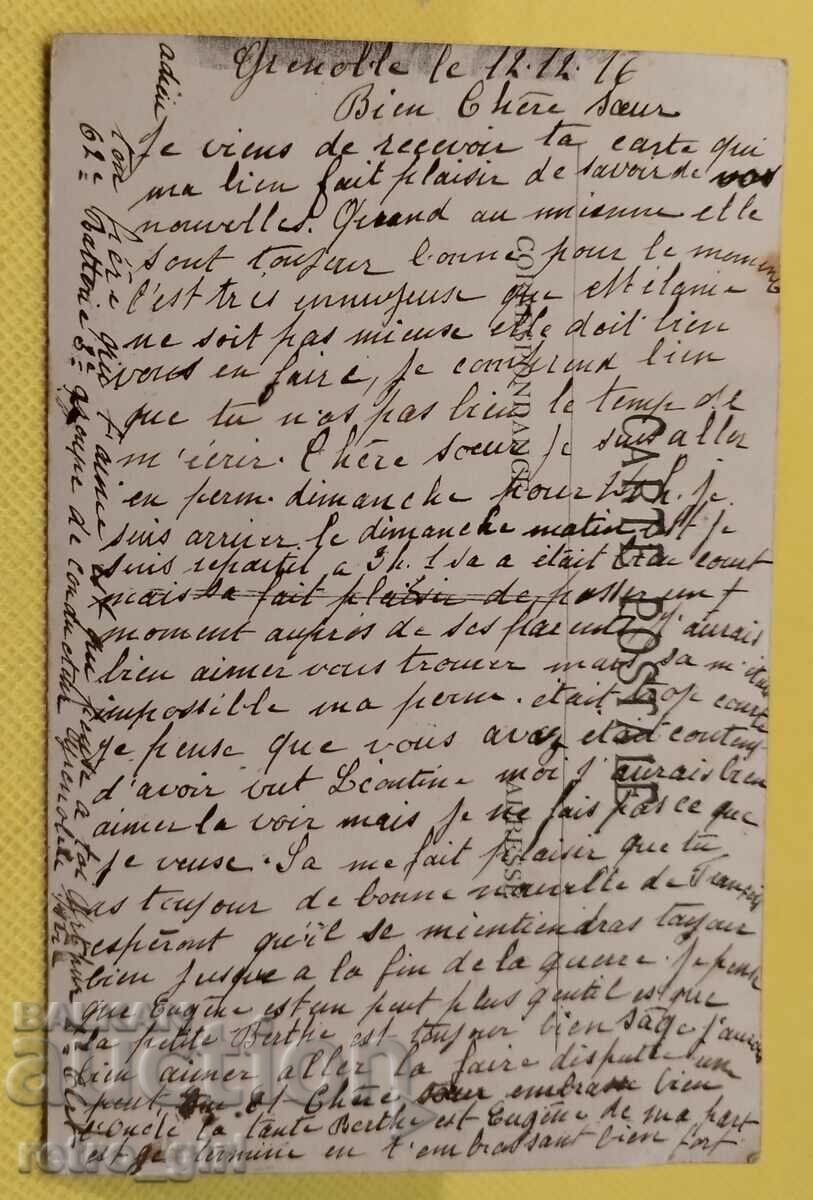 Grenoble le 12.12.16
Bien Chère Sœur
Je viens de recevoir ta carte qui
ma bien fait plaisir de savoir de vos
nouvelles. Quand au mienne elle
sont toujour bonne pour le moment
C'est tris ennuyeuse que Mélanie
ne soit pas mieuse elle doit bien
vous en faire, je comprend bien
que tu n'as pas bien le temp de
m'écrir. Chère Sœur je suis aller
en perm. dimanche pour h. je
suis arriver le dimanche matin est je
suis repartit a 3h. sa a était court
mais sa fait plaisir de passer un
moment auprès de ses parents j'aurais
bien aimer vous trouver mais sa m'était
impossible ma perm. était trop courte
je pense que vous avez était content
d'avoir vut Léontine moi j'aurais bien
aimer la voir mais je ne fais pas ce que
je veuse. Sa me fait plaisir que tu
as toujour de bonne nouvelle de François
espéront qu'il se mientiendras toujour
bien jusque a la fin de la guerre. Je pense
que Eugène est un peut plus gentil es que
la petite Berthe est toujour bien sage j'aurais
bien aimer aller la faire dispute une
peut Chère sœur embrasse bien
l'oncle la tante Berthe est Eugène de ma part
est je termine en t'embrassant bien fort
adieu
ton frère qui t'aime est qui pense a toi
62e Batterie 3e groupe de conducteur Grenoble Isère
CORRESPONDANCE
CARTE POSTALE
ADRESSE
BALKAN
auction
retro_girl